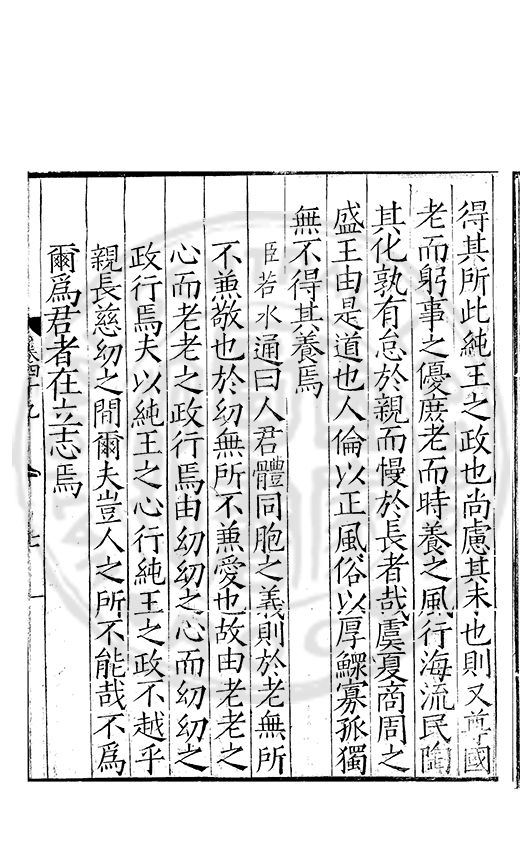 得其所此純王之政也尚慮其未也則又尊國
老而躬事之優庶老而時養之風行海流民陶
其化孰有怠於親而慢於長者哉虞夏商周之
盛王由是道也人倫以正風俗以厚鰥寡孤獨
無不得其養焉
臣若水通曰人君體同胞之義則於老無所
不兼敬也於幼無所不兼愛也故由老老之
心而老老之政行焉由幼幼之心而幼幼之
政行焉夫以純王之心行純王之政不越乎
親長慈幼之間爾夫豈人之所不能哉不爲
爾爲君者在立志焉
卷四十九